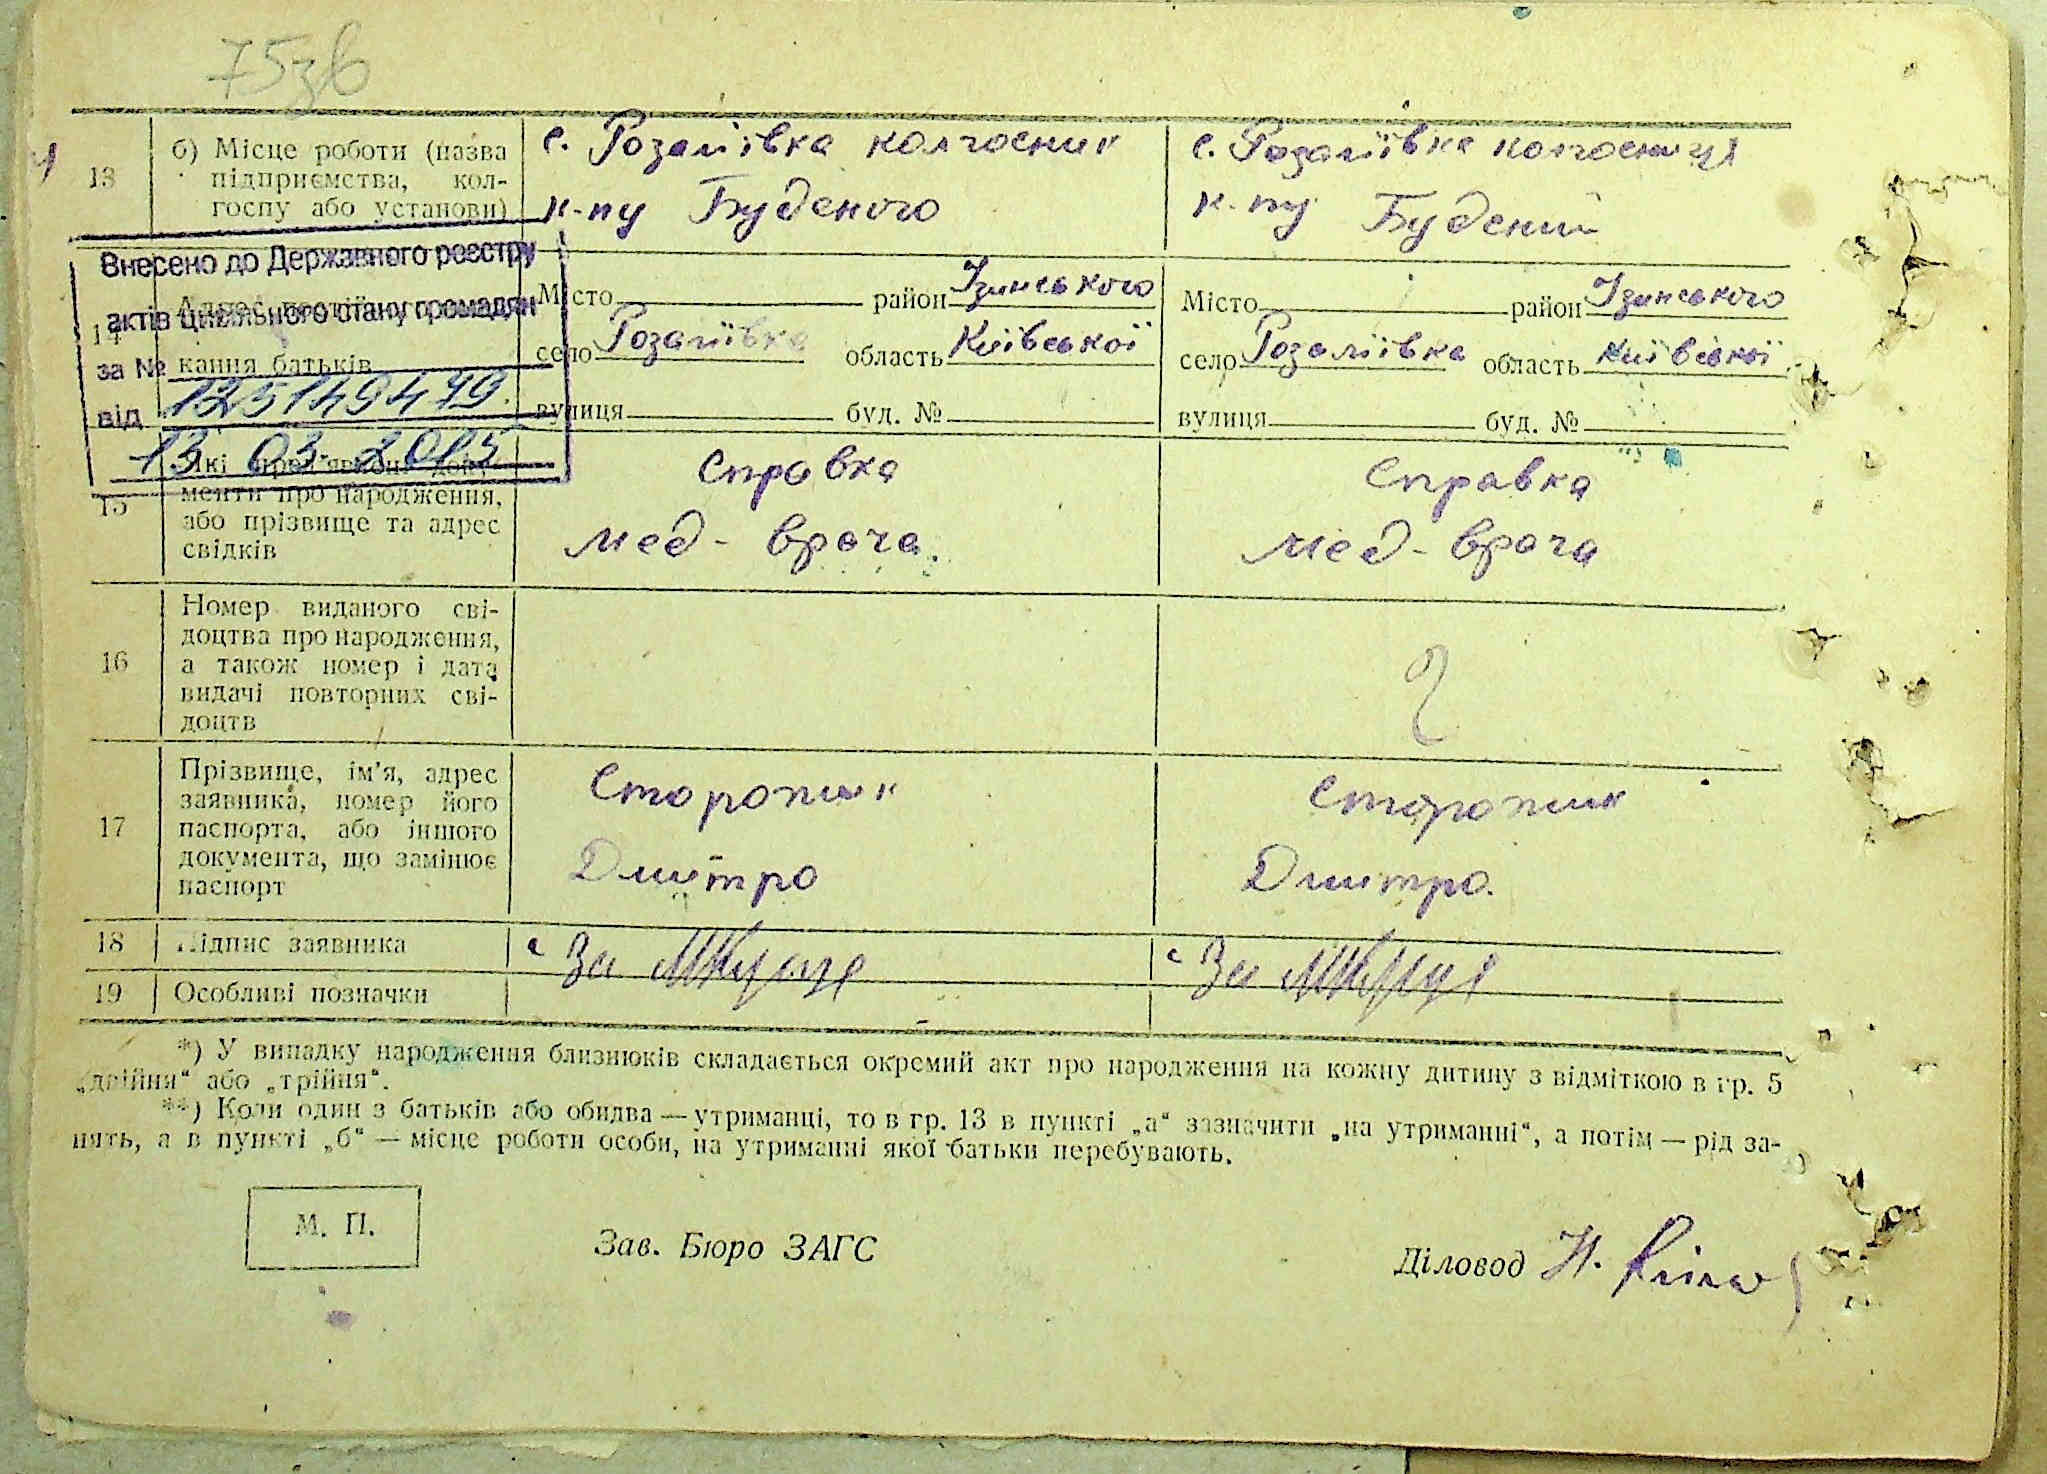 75зв
13
б) Місце роботи (назва
підприємства, кол-
госпу або установи)
с. Розаліївка колгосник
к-пу Буденого
с. Розаліївка колгосниця
к-пу Будений
Внесено до Державного реєстру
актів цивільного стану громадян
за №
125149479.
від
13. 03. 2015
14
кання батьків
Місто район Ізинського
село Розаліївка область Київської
вулиця буд. №
Місто район Ізинського
село Розаліївка область Київської
вулиця буд. №
15
менти про народження,
або прізвище та адрес
свідків
Справка
мед-врача.
Справка
мед-врача
16
Номер виданого сві-
доцтва про народження,
а також номер і дата
видачі повторних сві-
доцтв
17
Прізвище, ім'я, адрес
заявника, номер його
паспорта, або іншого
документа, що замінює
паспорт
Сторожик
Дмитро
Сторожик
Дмитро.
18
Підпис заявника
За
За
19
Особливі позначки
*) У випадку народження близнюків складається окремий акт про народження на кожну дитину з відміткою в гр. 5
„двійня“ або „трійня“.
**) Коли один з батьків або обидва — утриманці, то в гр. 13 в пункті „а“ зазначити „на утриманні“, а потім — рід за-
нять, а в пункті „б“ — місце роботи особи, на утриманні якої батьки перебувають.
М. П.
Зав. Бюро ЗАГС
Діловод Н.